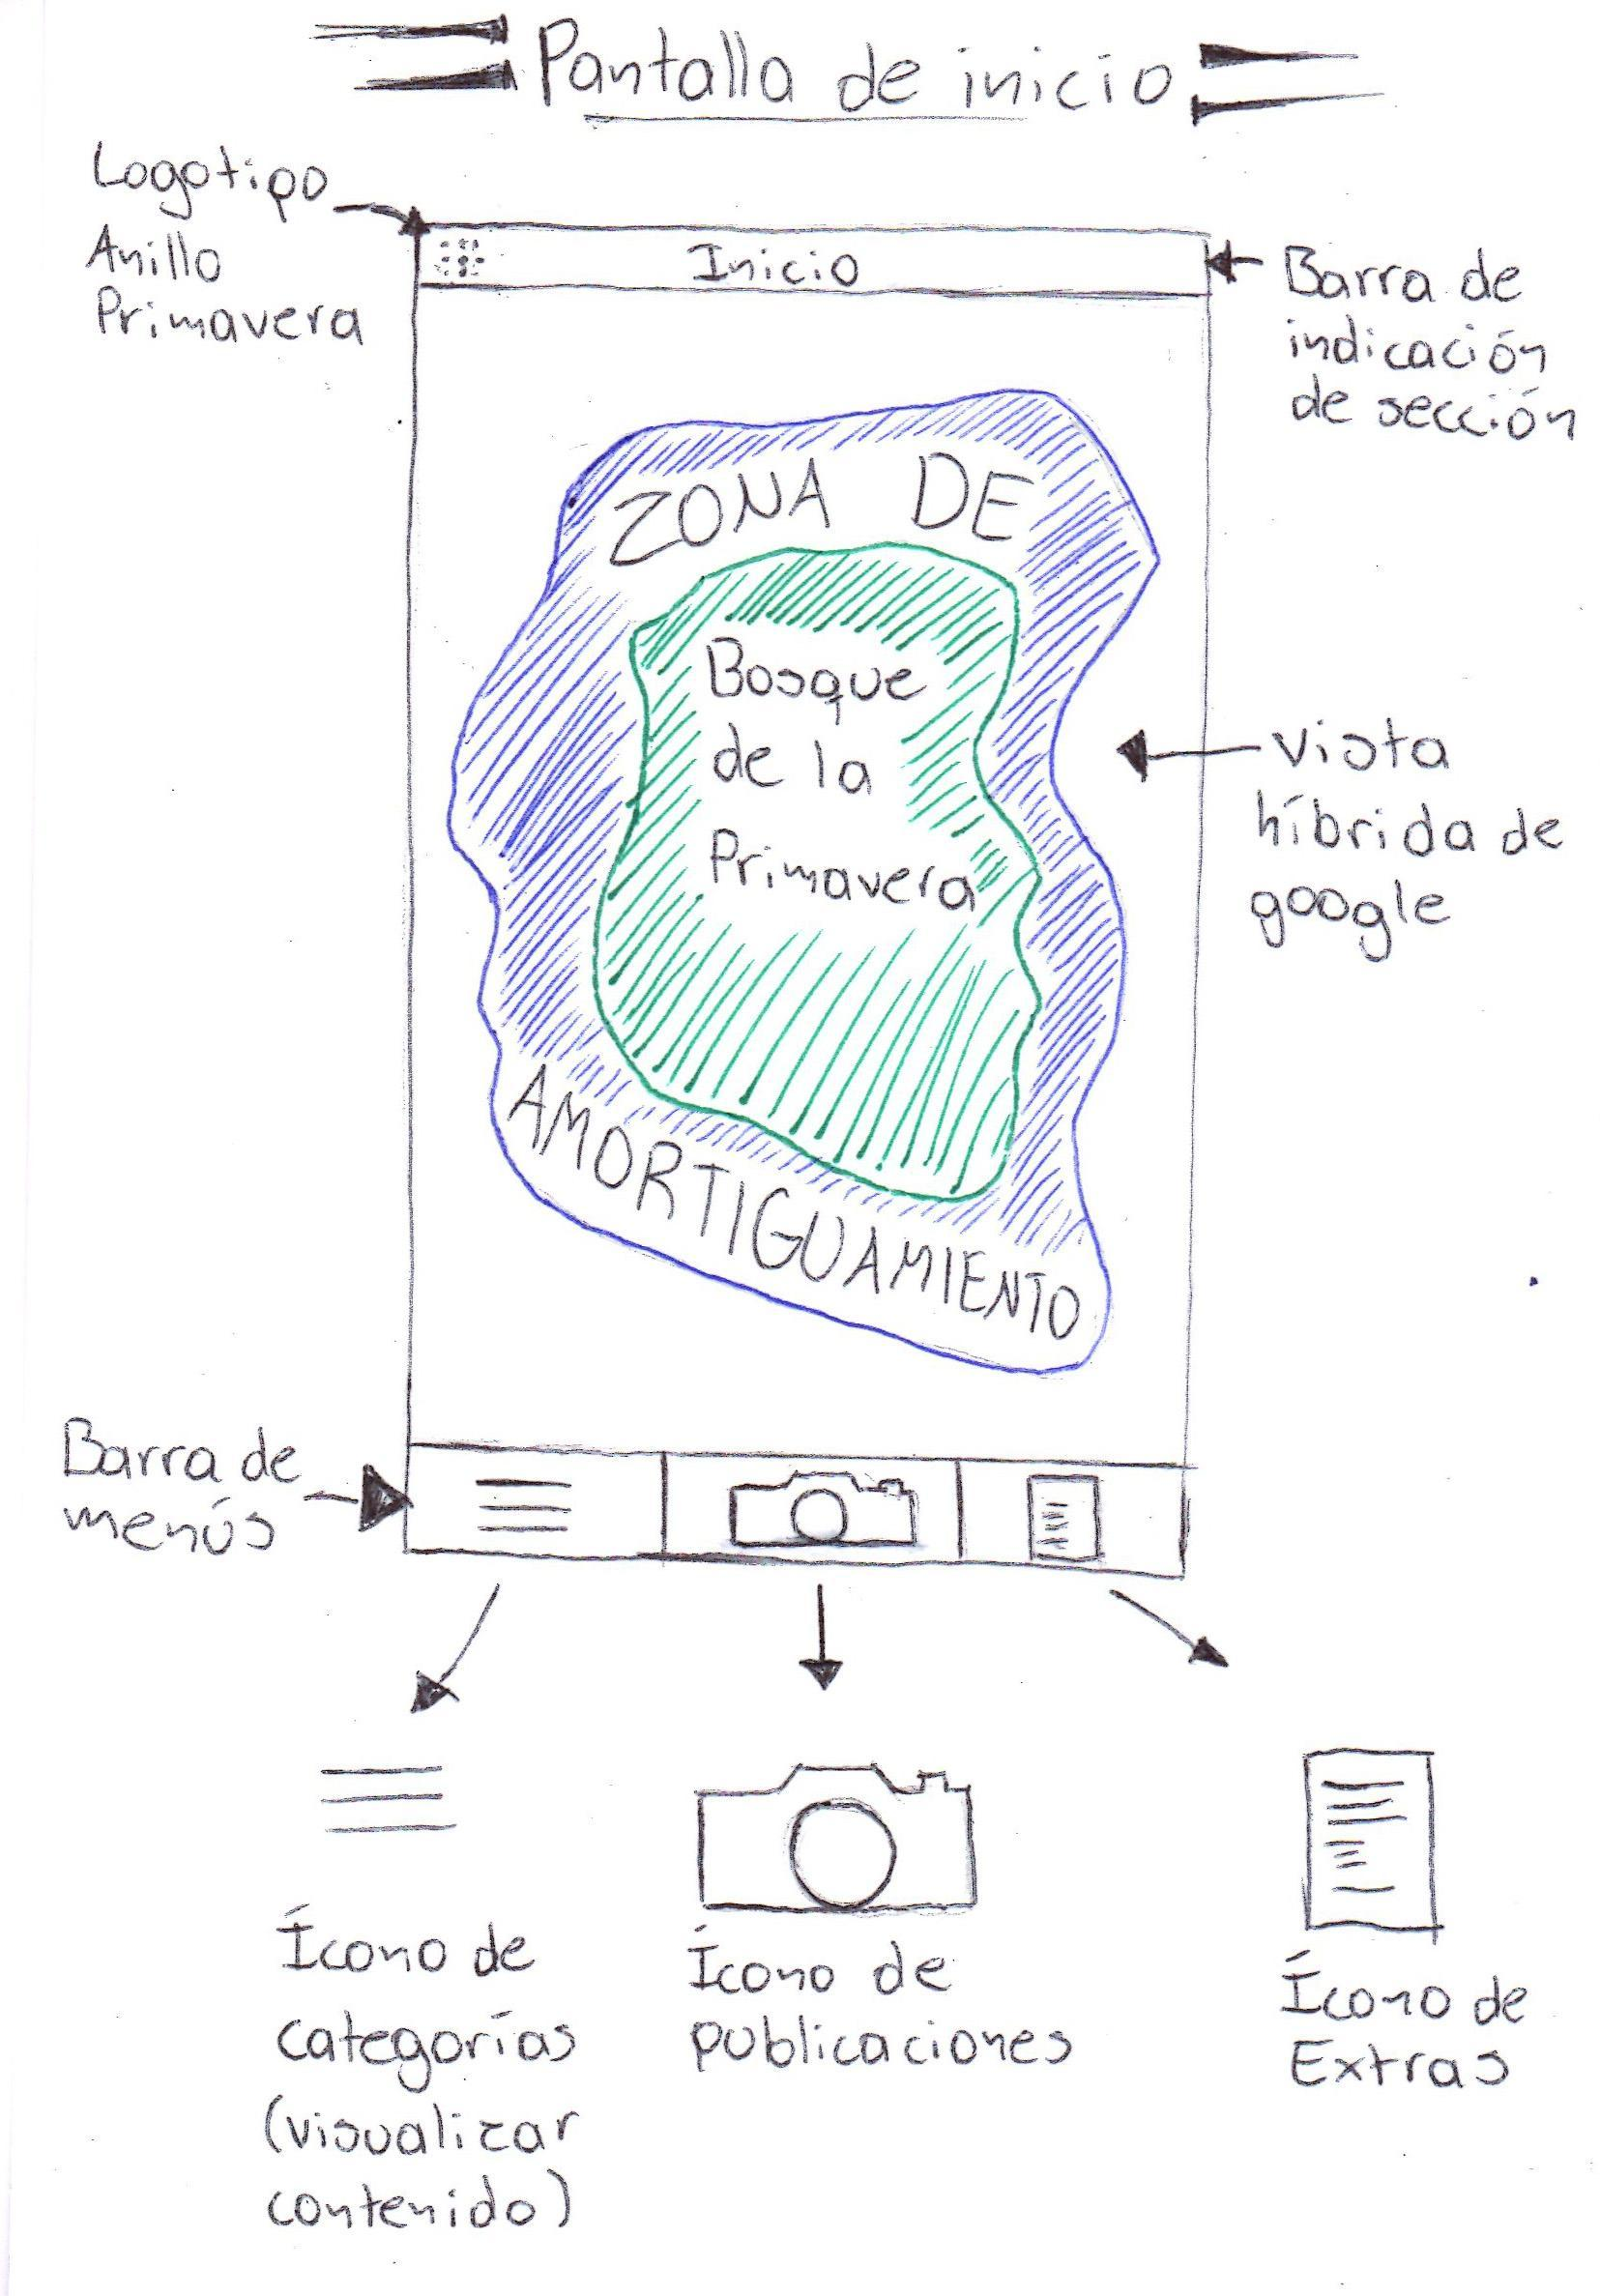 Pantalla de inicio
Logotipo
Anillo
Primavera
Inicio
Barra de
indicación
de sección
ZONA DE
Bosque
de la
Primavera
AMORTIGUAMIENTO
vista
híbrida de
google
Barra de
menús
Ícono de
categorías
(visualizar
contenido)
Ícono de
publicaciones
Ícono de
Extras